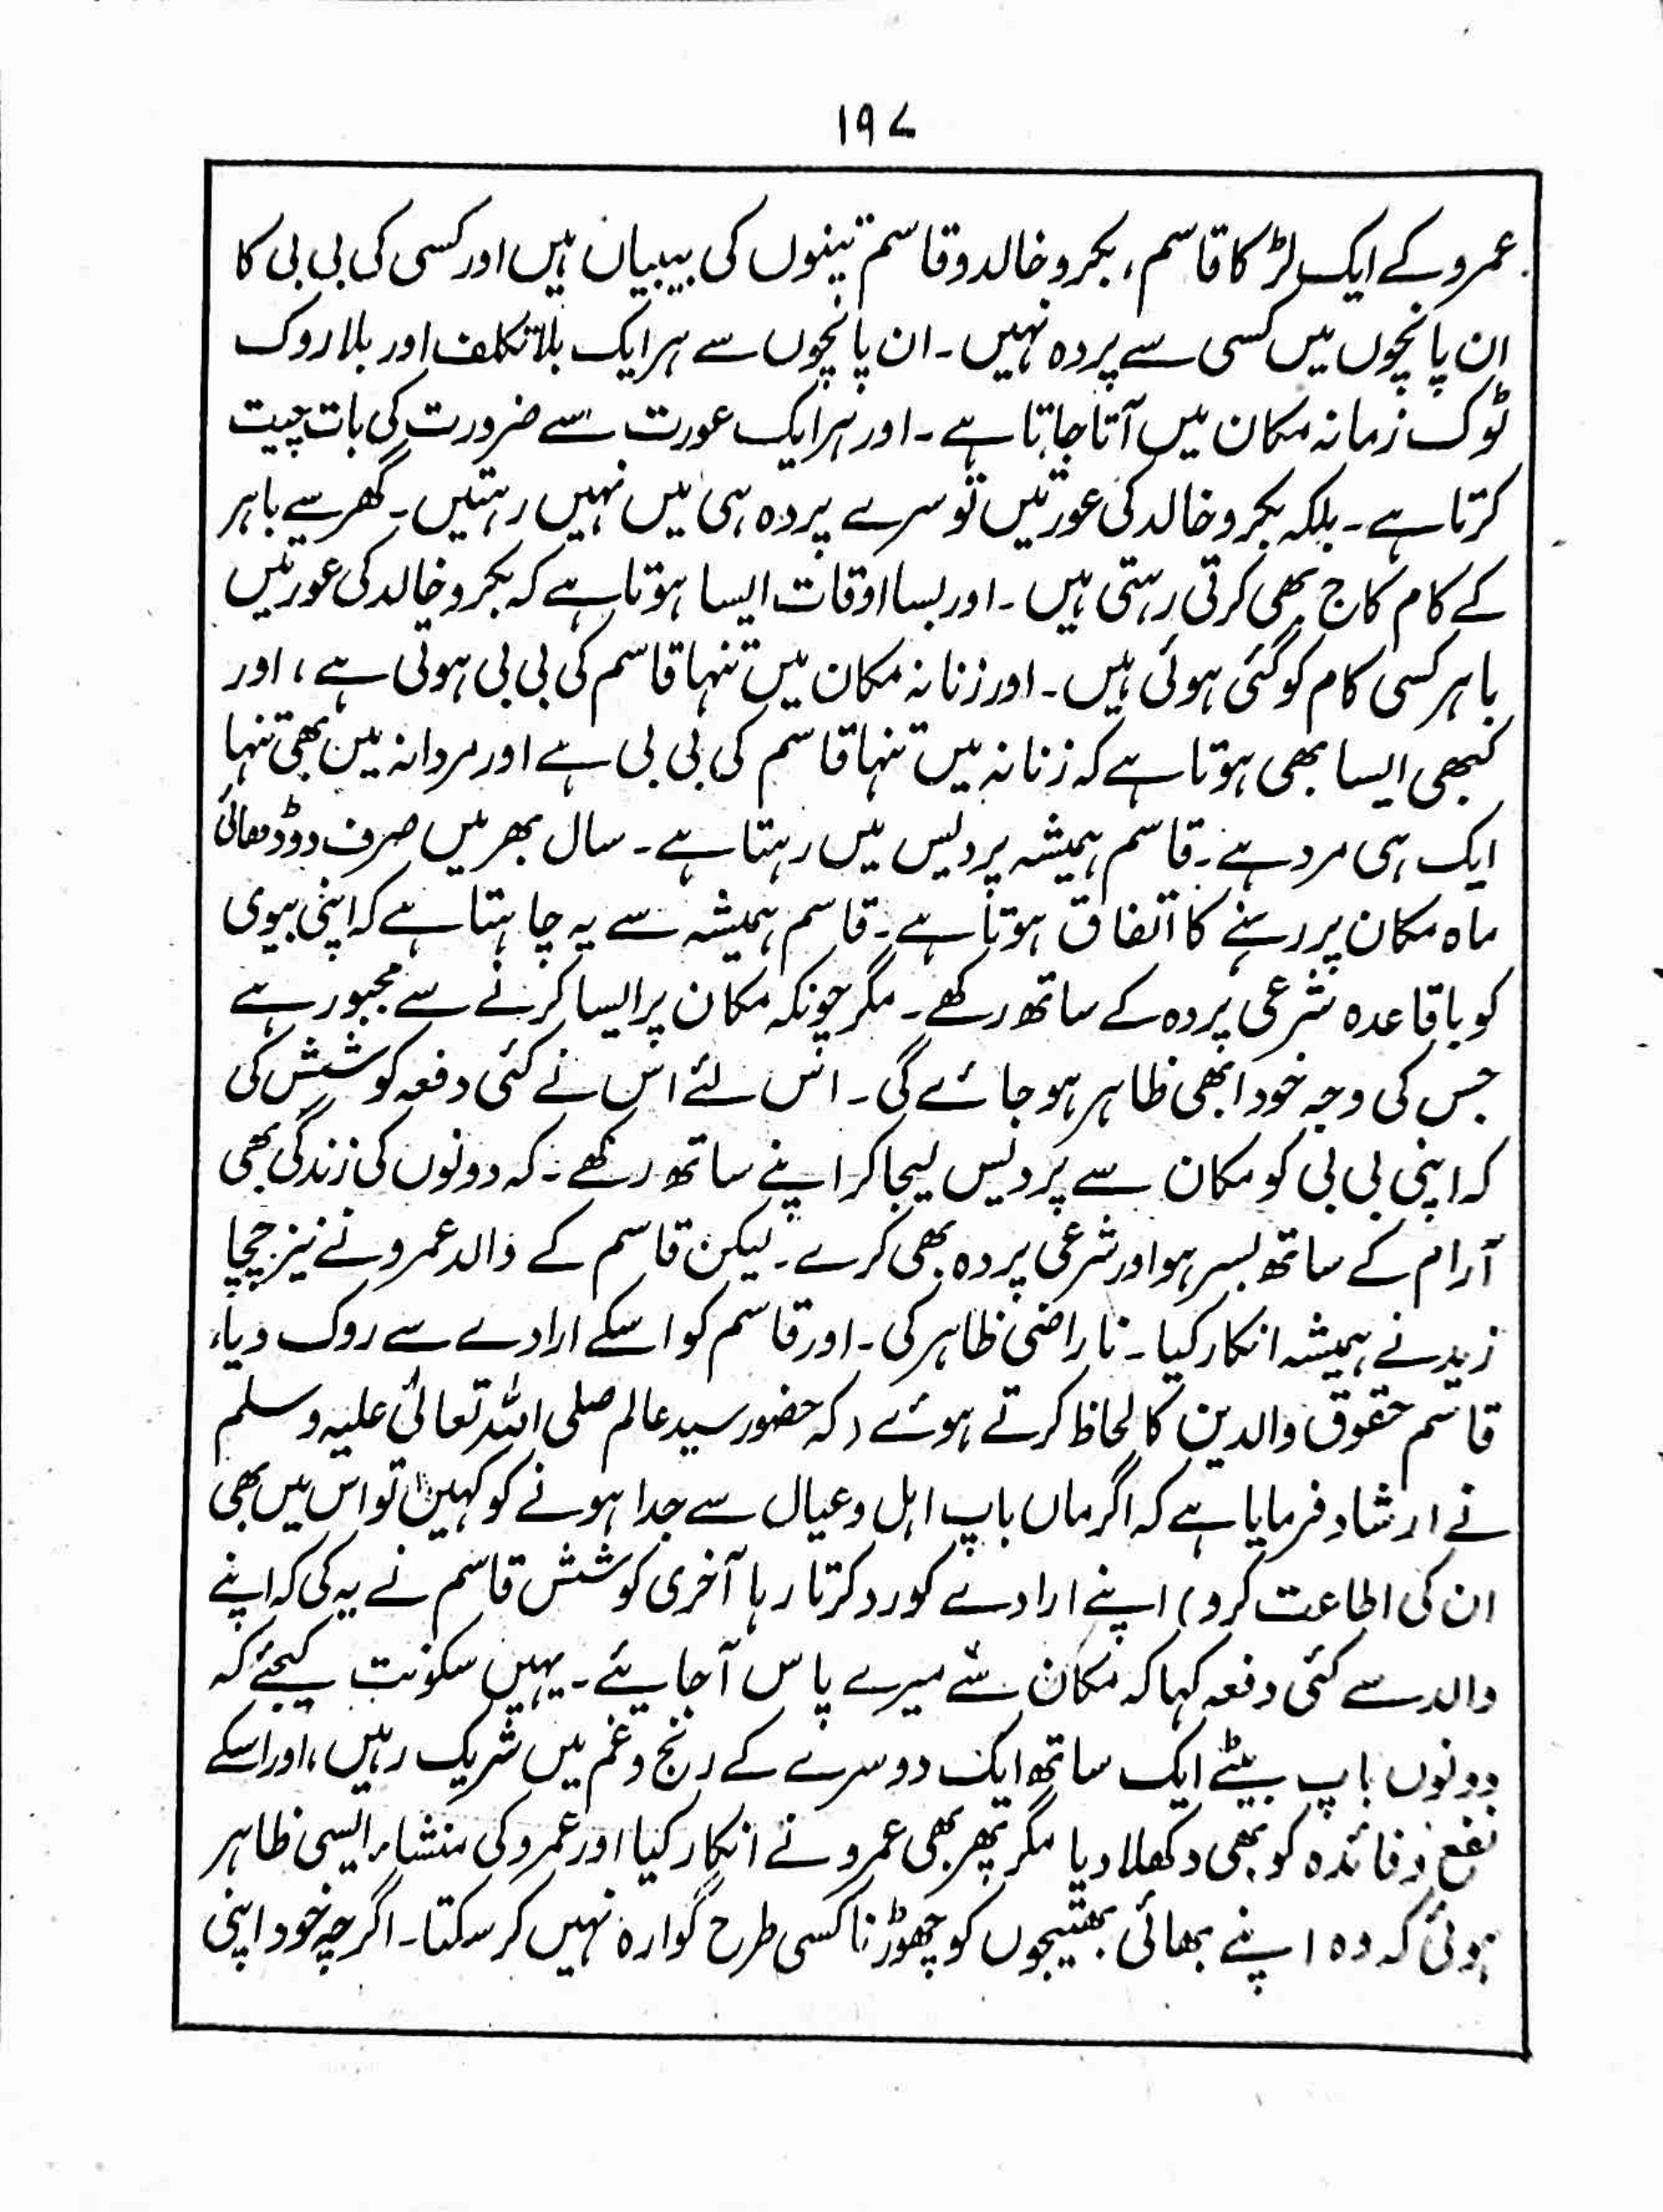 ۱۹۷
عمرو کے ایک لڑکا قاسم، بکر و خالد و قاسم تینوں کی بیبیاں ہیں اور کسی کی بی بی کا
ان پانچوں میں کسی سے پردہ نہیں۔ ان پانچوں سے ہر ایک بلا تکلف اور بلا روک
ٹوک زمانہ مکان میں آتا جاتا ہے۔ اور ہر ایک عورت سے ضرورت کی بات چیت
کرتا ہے۔ بلکہ بکر و خالد کی عورتیں تو سرے پردہ ہی میں نہیں رہتیں۔ گھر سے باہر
کے کام کاج بھی کرتی رہتی ہیں۔ اور بسا اوقات ایسا ہوتا ہے کہ بکر و خالد کی عورتیں
باہر کسی کام کو گئی ہوئی ہیں۔ اور زنانہ مکان میں تنہا قاسم کی بی بی ہوتی ہے، اور
کبھی ایسا بھی ہوتا ہے کہ زنانہ میں تنہا قاسم کی بی بی ہے اور مردانہ میں بھی تنہا
ایک ہی مرد ہے۔ قاسم ہمیشہ پردیس میں رہتا ہے۔ سال بھر میں صرف دو ڈھائی
ماہ مکان پر رہنے کا اتفاق ہوتا ہے۔ قاسم ہمیشہ سے یہ چاہتا ہے کہ اپنی بیوی
کو باقاعدہ شرعی پردہ کے ساتھ رکھے۔ مگر چونکہ مکان پر ایسا کرنے سے مجبور ہے
جس کی وجہ خود ابھی ظاہر ہو جائے گی۔ اس لئے اس نے کئی دفعہ کوشش کی
کہ اپنی بی بی کو مکان سے پردیس لیجا کر اپنے ساتھ رکھے۔ کہ دونوں کی زندگی بھی
آرام کے ساتھ بسر ہو اور شرعی پردہ بھی کرے۔ لیکن قاسم کے والد عمرو نے نیز چچا
زید نے ہمیشہ انکار کیا۔ ناراضی ظاہر کی۔ اور قاسم کو اسکے ارادے سے روک دیا،
قاسم حقوق والدین کا لحاظ کرتے ہوئے (کہ حضور سید عالم صلی اللہ تعالیٰ علیہ وسلم
نے ارشاد فرمایا ہے کہ اگر ماں باپ اہل و عیال سے جدا ہونے کو کہیں تو اس میں بھی
ان کی اطاعت کرو) اپنے ارادے کو رد کرتا رہا آخری کوشش قاسم نے یہ کی کہ اپنے
والد سے کئی دفعہ کہا کہ مکان سے میرے پاس آجایئے۔ یہیں سکونت کیجئے کہ
دونوں باپ بیٹے ایک ساتھ ایک دوسرے کے رنج و غم میں شریک رہیں، اور اسکے
نفع و فائدہ کو بھی دکھلا دیا مگر پھر بھی عمرو نے انکار کیا اور عمرو کی منشاء ایسی ظاہر
ہوئی کہ وہ اپنے بھائی بھتیجوں کو چھوڑنا کسی طرح گوارہ نہیں کر سکتا۔ اگرچہ خود اپنی